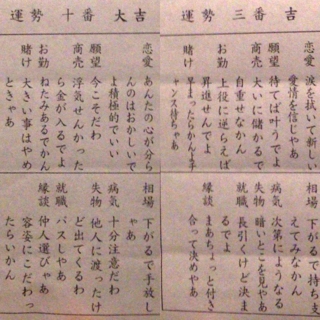 運勢 三番 吉
恋愛 涙を拭いて新しい
愛情を信じやあ
願望 待てば叶うでよ
商売 大いに儲かるで
自重せなかん
お勤 上役に逆らえば
昇進せんでよ
賭け 早まったらかんよチ
ャンス待ちゃあ
相場 下がるで持ち支
えてみなかん
病気 次第にようなる
失物 暗いとこを見やあ
就職 長引くけど決ま
るでよ
縁談 まあちょっと付き
合って決めやあ
運勢 十番 大吉
恋愛 あんたの心が分ら
んのはおかしいで
よ積極的でいい
願望 今こそだわ
商売 浮気せんかった
ら金が入るでよ
お勤 ねたみあるでかん
賭け 大きい事はやめ
ときゃあ
相場 下がるで手放し
ゃあ
病気 十分注意だわ
失物 他人に渡ったけ
ど出てくるわ
就職 パスしやあ
縁談 仲人選びゃあ
容姿にこだわっ
たらいかん